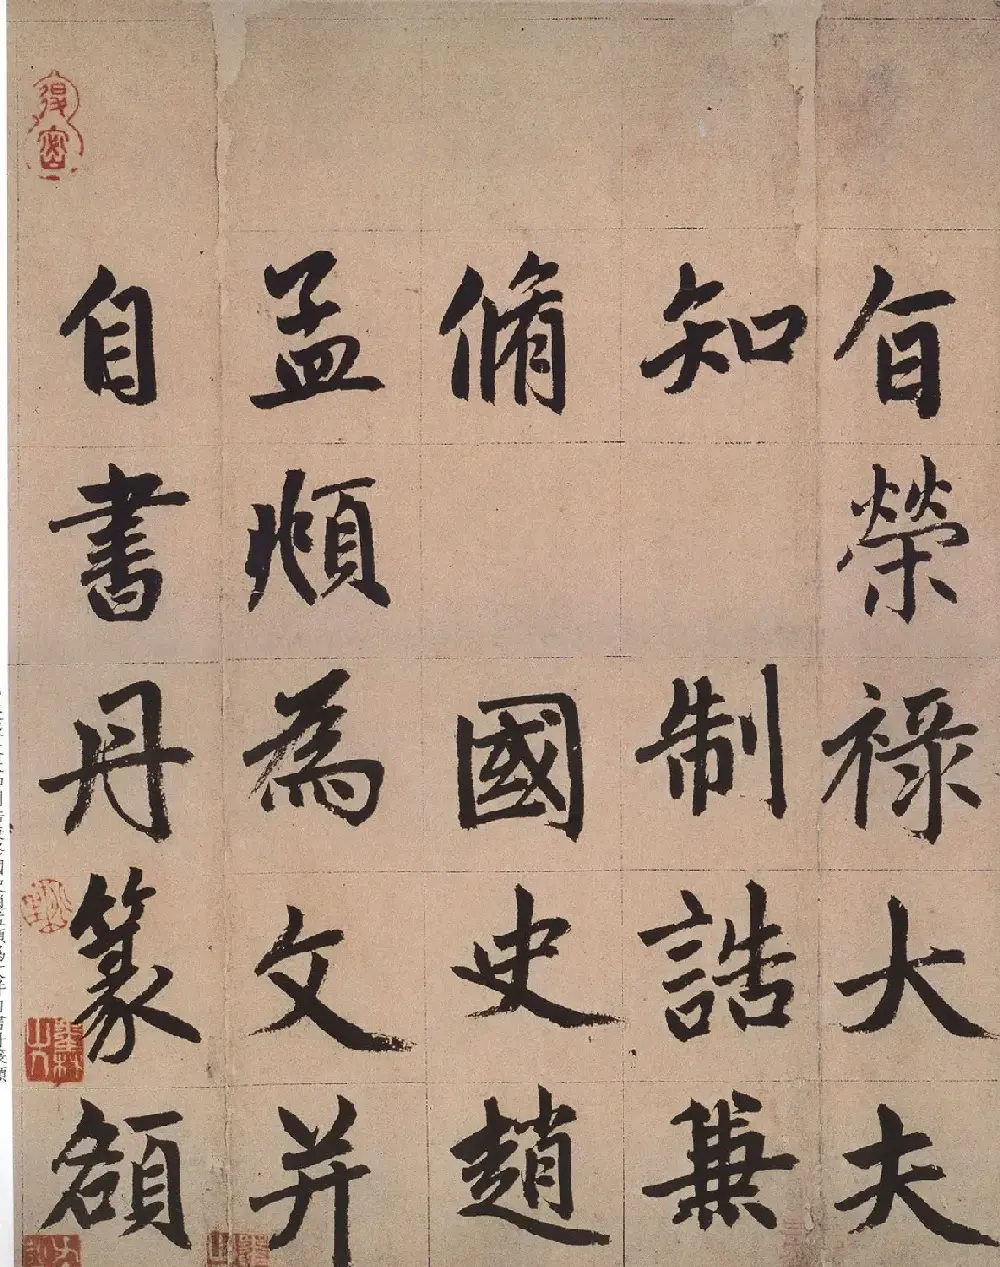 旨榮祿大夫
知制誥兼
脩國史趙
孟頫為文并
自書丹篆額